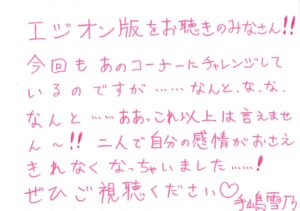 エジオン版をお聴きのみなさん!!
今回も あのコーナーにチャレンジして
いるのですが ……なんと、な、な、
なんと……ああっこれ以上は言えませ
ん~!! 二人で自分の感情がおさえ
きれなくなっちゃいました……!
ぜひご視聴ください♡ 手嶋雪乃